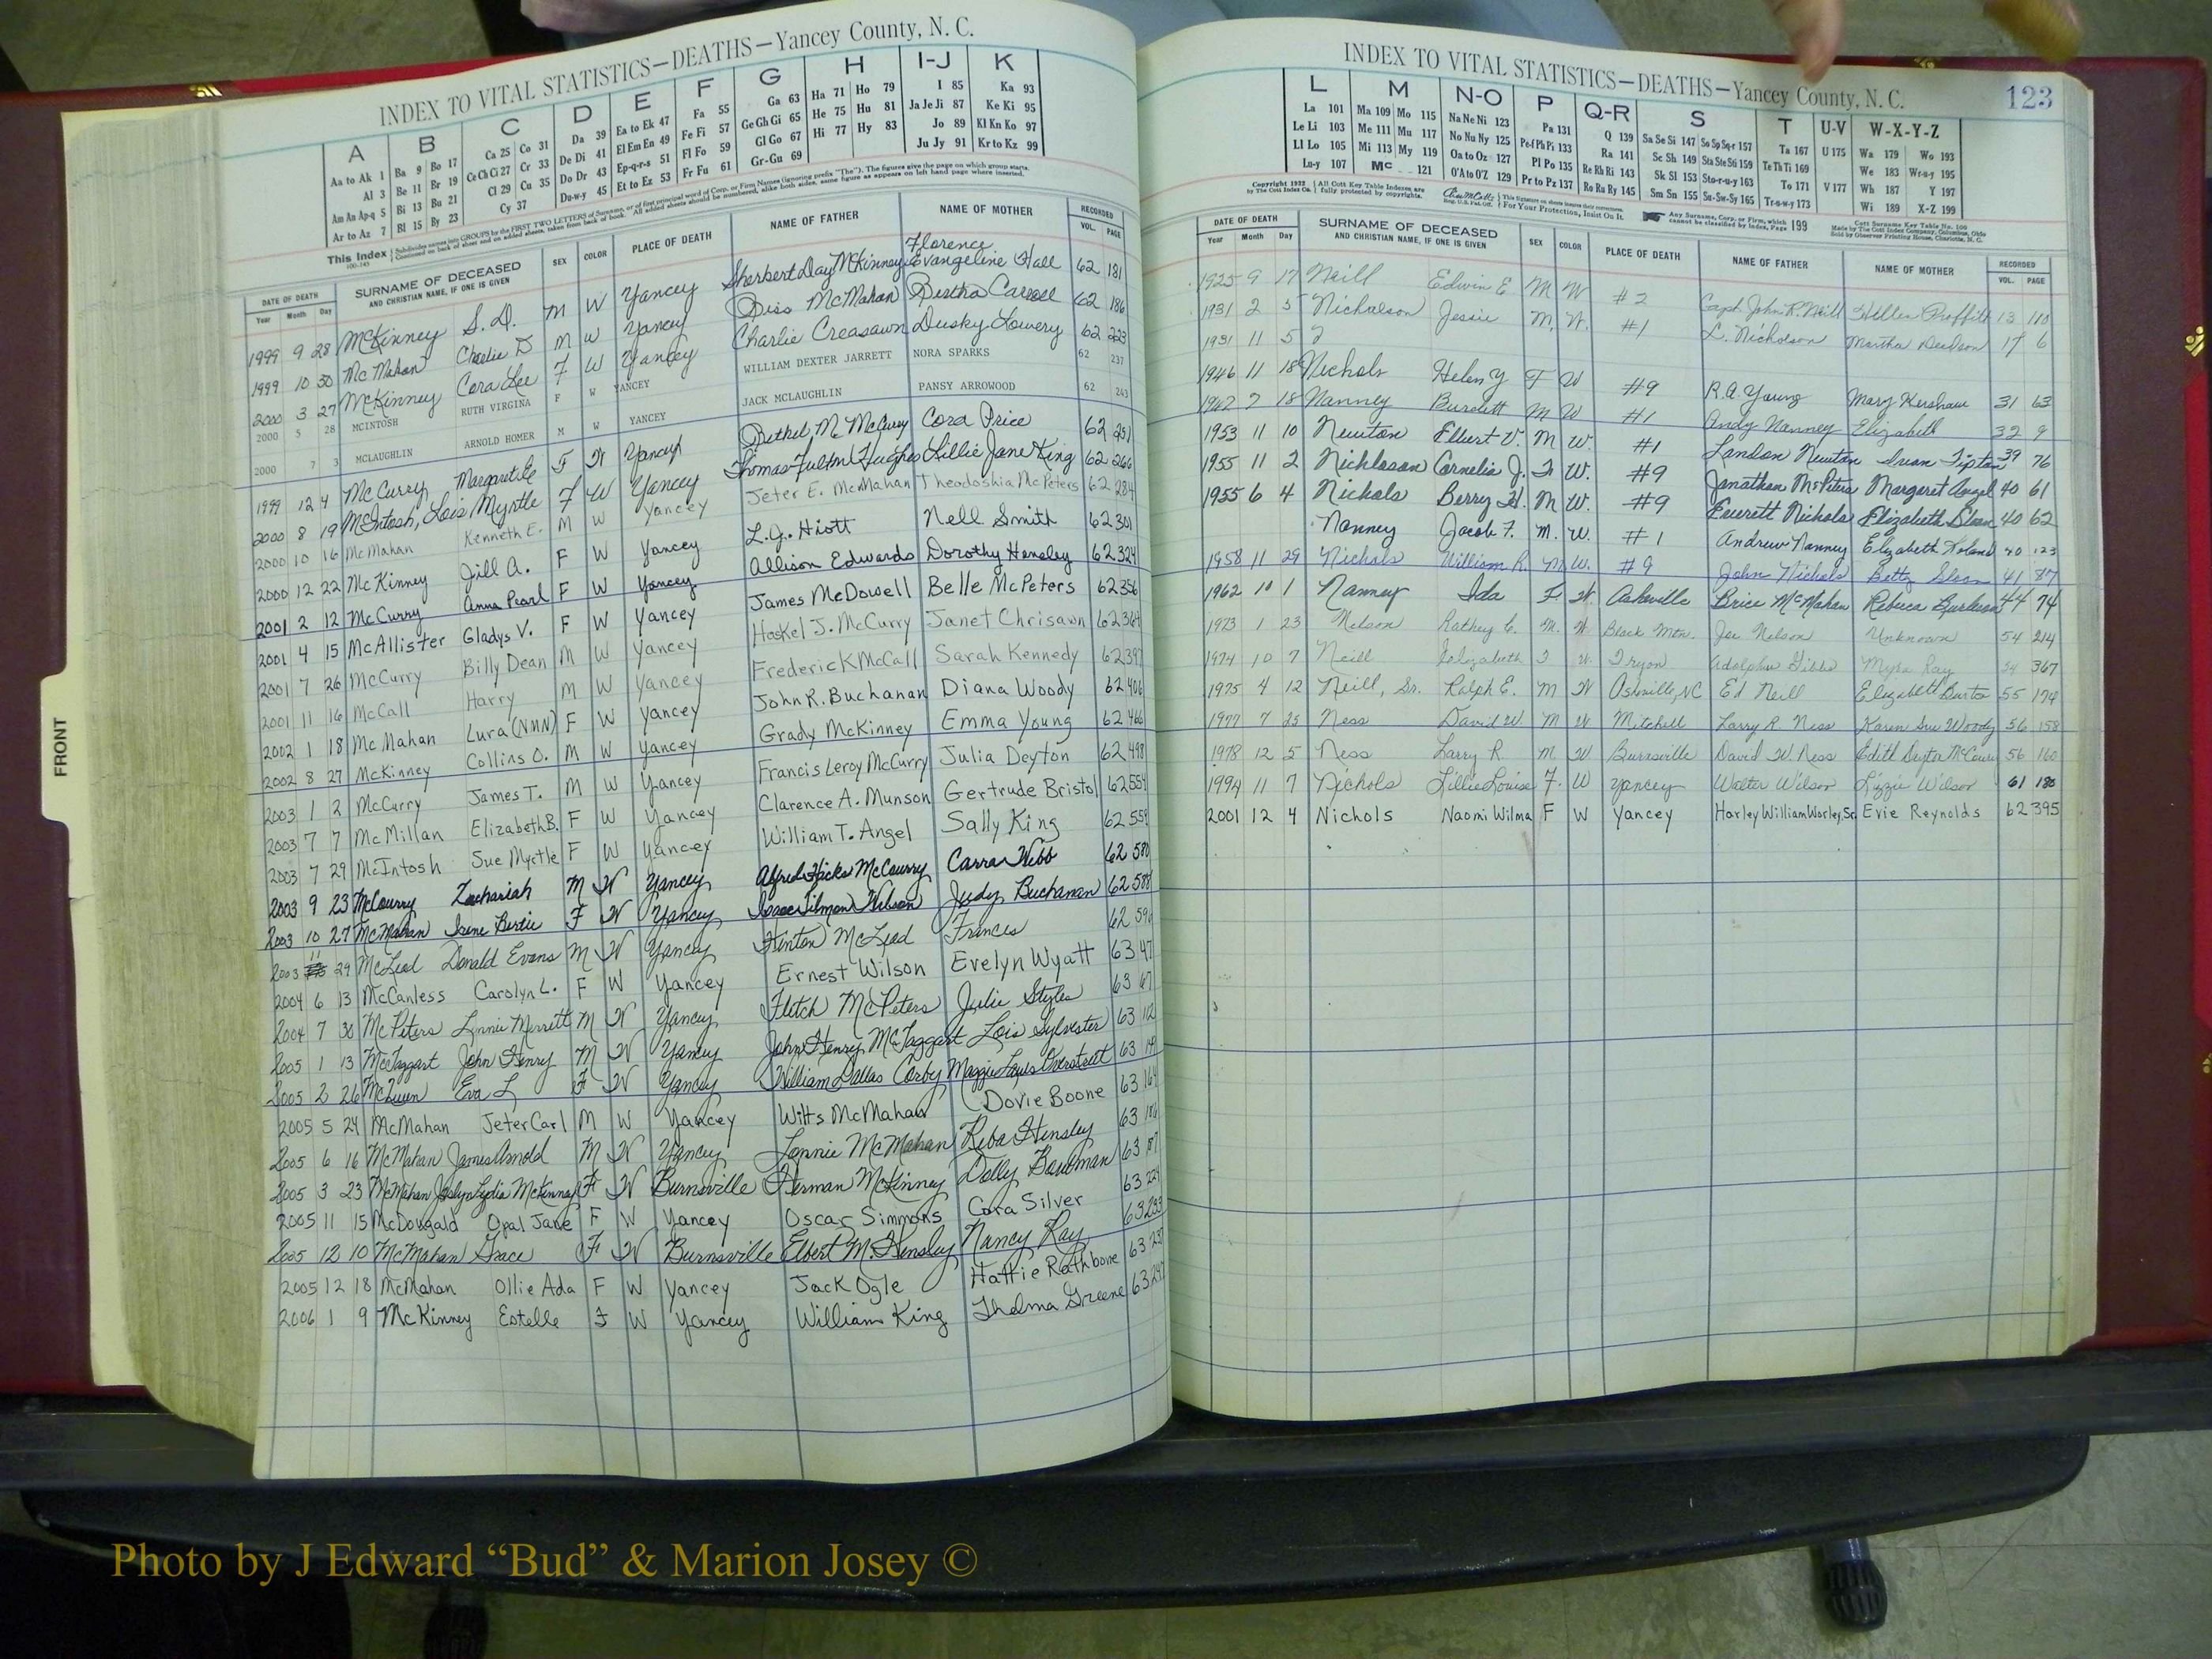 INDEX TO VITAL STATISTICS—DEATHS—Yancey County, N. C.
A B C D E F G H I-J K
Aa to Ak 1 Ba 9 Bo 17 Ca 25 Co 31 Da 39 Ea to Ek 47 Fa 55 Ga 63 Ha 71 Ho 79 I 85 Ka 93
Al 3 Be 11 Br 19 Ce Ch Ci 27 Cr 33 De Di 41 El Em En 49 Fe Fi 57 Ge Gh Gi 65 He 75 Hu 81 Ja Je Ji 87 Ke Ki 95
Am An Ap-q 5 Bi 13 Bu 21 Cl 29 Cu 35 Do Dr 43 Ep-q-r-s 51 Fl Fo 59 Gl Go 67 Hi 77 Hy 83 Jo 89 Kl Kn Ko 97
Ar to Az 7 Bl 15 By 23 Cy 37 Du-w-y 45 Et to Ez 53 Fr Fu 61 Gr-Gu 69 Ju Jy 91 Kr to Kz 99
This Index
DATE OF DEATH SURNAME OF DECEASED SEX COLOR PLACE OF DEATH NAME OF FATHER NAME OF MOTHER RECORDED
Year Month Day AND CHRISTIAN NAME, IF ONE IS GIVEN VOL. PAGE
1999 9 28 McKinney S. D. M W Yancey Sherbert Day McKinney Florence Evangeline Hall 62 181
1999 10 30 McMahan Charlie D M W Yancey Diss McMahan Bertha Carroll 62 186
2000 3 27 McKinney Cora Lee F W Yancey Charlie Creasawn Dusky Lowery 62 223
2000 5 28 MCINTOSH RUTH VIRGINA F W YANCEY WILLIAM DEXTER JARRETT NORA SPARKS 62 237
2000 7 3 MCLAUGHLIN ARNOLD HOMER M W YANCEY JACK MCLAUGHLIN PANSY ARROWOOD 62 243
1999 12 4 McCurry Margaret F W Yancey Bethel M. McCurry Cora Price 62 251
2000 8 19 McIntosh, Lois Myrtle F W Yancey Thomas Fulton Hughes Lillie Jane King 62 266
2000 10 16 McMahan Kenneth E. M W Yancey Jeter E. McMahan Theodoshia McPeters 62 284
2000 12 22 McKinney Jill A. F W Yancey L.G. Hiott Nell Smith 62 301
2001 2 12 McCurry Anna Pearl F W Yancey Allison Edwards Dorothy Hensley 62 324
2001 4 15 McAllister Gladys V. F W Yancey James McDowell Belle McPeters 62 336
2001 7 26 McCurry Billy Dean M W Yancey Haskel J. McCurry Janet Chrisawn 62 364
2001 11 16 McCall Harry M W Yancey Frederick McCall Sarah Kennedy 62 397
2002 1 18 McMahan Lura (NMN) F W Yancey John R. Buchanan Diana Woody 62 406
2002 8 27 McKinney Collins O. M W Yancey Grady McKinney Emma Young 62 466
2003 1 2 McCurry James T. M W Yancey Francis Leroy McCurry Julia Deyton 62 498
2003 7 7 McMillan Elizabeth B. F W Yancey Clarence A. Munson Gertrude Bristol 62 554
2003 7 29 McIntosh Sue Myrtle F W Yancey William T. Angel Sally King 62 559
2003 9 23 McCourry Zachariah M W Yancey Alfred Hicks McCourry Carra Webb 62 580
2003 10 27 McMahan Irene Bertie F W Yancey Isaac Tilmon Wilson Judy Buchanan 62 588
2003 11 29 McLead Donald Evans M W Yancey Hinton McLead Frances 62 59
2004 6 13 McCanless Carolyn L. F W Yancey Ernest Wilson Evelyn Wyatt 63 47
2004 7 30 McPeters Lonnie Merritt M W Yancey Fletch McPeters Julie Styles 63 67
2005 1 13 McTaggart John Henry M W Yancey John Henry McTaggart Lois Sylvester 63 112
2005 2 26 McQueen Eva L F W Yancey William Dallas Corby Maggie 63 14
2005 5 24 McMahan Jeter Carl M W Yancey Wilts McMahan Dovie Boone 63 164
2005 6 16 McMahan James Arnold M W Yancey Lonnie McMahan Reba Hensley 63 186
2005 3 23 McMahan Joslyn Lydia McKinney F W Burnsville Herman McKinney Dolly Bowman 63 187
2005 11 15 McDougald Opal Jane F W Yancey Oscar Simmons Cora Silver 63 224
2005 12 10 McMahan Grace F W Burnsville Elbert M. Hensley Nancy Ray 63 233
2005 12 18 McMahan Ollie Ada F W Yancey Jack Ogle Hattie Rathbone 63 237
2006 1 9 McKinney Estelle F W Yancey William King Thelma Greene 63 247
FRONT
INDEX TO VITAL STATISTICS—DEATHS—Yancey County, N. C. 123
L M N-O P Q-R S T U-V W-X-Y-Z
La 101 Ma 109 Mo 115 Na Ne Ni 123 Pa 131 Q 139 Sa Se Si 147 So Sp Sq-r 157 Ta 167 U 175 Wa 179 Wo 193
Le Li 103 Me 111 Mu 117 No Nu Ny 125 Pe-f Ph Pi 133 Ra 141 Sc Sh 149 Sta Ste Sti 159 Te Th Ti 169 We 183 Wr-u-y 195
Ll Lo 105 Mi 113 My 119 Oa to Oz 127 Pl Po 135 Re Rh Ri 143 Sk Sl 153 Sto-r-u-y 163 To 171 V 177 Wh 187 Y 197
Lu-y 107 Mc 121 O'A to O'Z 129 Pr to Pz 137 Ro Ru Ry 145 Sm Sn 155 Su-Sw-Sy 165 Tr-u-w-y 173 Wi 189 X-Z 199
Copyright 1922 by The Cott Index Co. All Cott Key Table Indexes are fully protected by copyrights. For Your Protection, Insist On It. Any Surname, Corp. or Firm, which cannot be classified by Index, Page 199
DATE OF DEATH SURNAME OF DECEASED SEX COLOR PLACE OF DEATH NAME OF FATHER NAME OF MOTHER RECORDED
Year Month Day AND CHRISTIAN NAME, IF ONE IS GIVEN VOL. PAGE
1925 9 17 Neill Edwin E. M W #2 Capt. John R. Neill Hellen Proffitt 13 110
1931 2 5 Nicholson Jessie M. W. #1 L. Nicholson Martha Deidson 17 6
1931 11 5
1946 11 18 Nichols Helen Y F W #9 R.A. Young Mary Kershaw 31 63
1947 7 18 Nanney Burdett M W #1 Andy Nanney Elizabeth 32 9
1953 11 10 Newton Elbert V. M W. #1 Landon Newton Tipton 39 76
1955 11 2 Nichloson Cornelia J. F W. #9 Jonathan McPeters Margaret Angel 40 61
1955 6 4 Nichols Berry H. M W. #9 Everett Nichols Elizabeth Sloan 40 62
Nanney Jacob F. M. W. #1 Andrew Nanney Elizabeth 40 123
1958 11 29 Nichols William R. M W. #9 John Nichols Betty Sloan 41 87
1962 10 1 Nanney Ida F W. Asheville Brice McMahan Rebecca Burleson 44 74
1973 1 23 Nelson Rathey C. M. W. Black Mtn. Joe Nelson Unknown 54 214
1974 10 7 Neill Elizabeth F W. Tryon Adolphus Gibbs Myra Ray 54 367
1975 4 12 Neill, Sr. Ralph E. M W Asheville, NC Ed Neill Elizabeth Burton 55 174
1977 7 25 Ness David W M W. Mitchell Larry R. Ness Karen Sue Woody 56 158
1978 12 5 Ness Larry R. M. W Burnsville David W. Ness Edith Deyton McCurry 56 160
1994 11 7 Nichols Lillie Louise F. W Yancey Walter Wilson Lizzie Wilson 61 180
2001 12 4 Nichols Naomi Wilma F W Yancey Harley William Worley, Sr. Evie Reynolds 62 395
Photo by J Edward “Bud” & Marion Josey ©